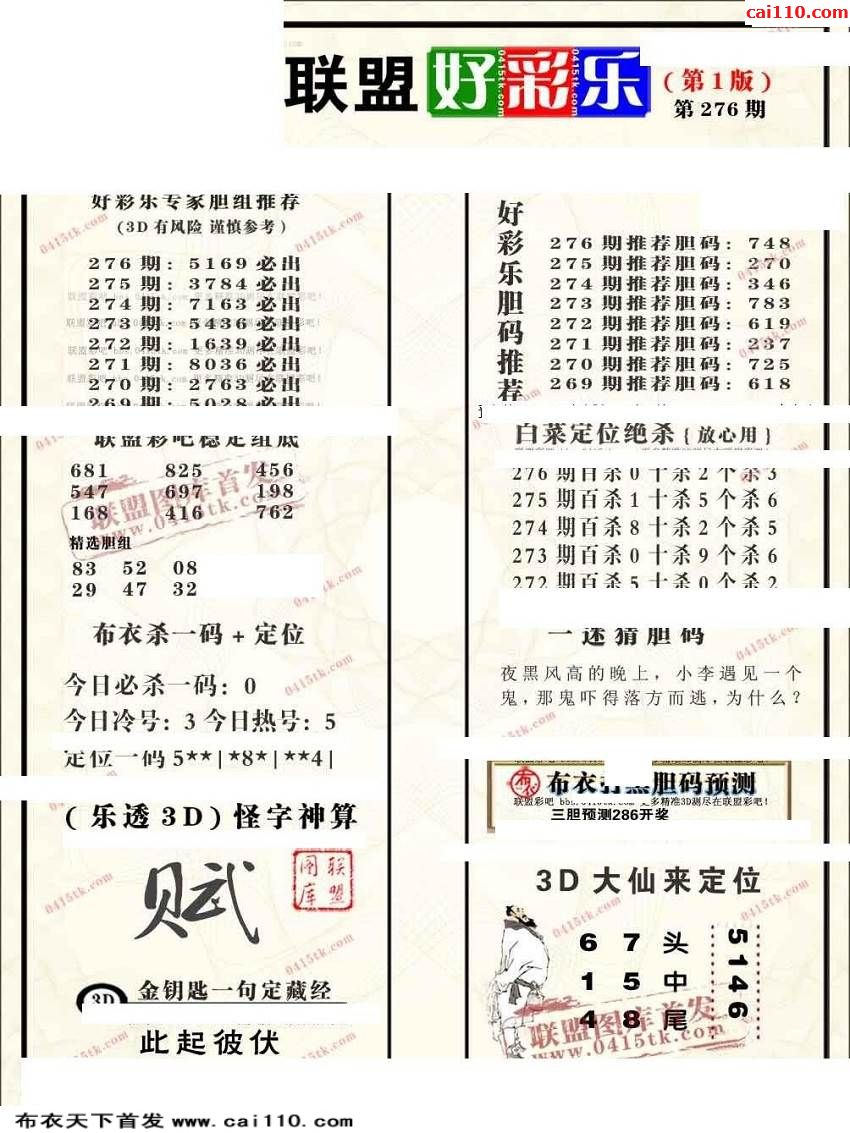 cai110.com
联盟好彩乐
(第1版)
第276期
好彩乐专家胆组推荐
(3D有风险 谨慎参考)
276期: 5169必出
275期: 3784必出
274期: 7163必出
273期: 5436必出
272期: 1639必出
271期: 8036必出
270期: 2763必出
269期: 5028必出
联盟彩吧稳定组底
681 825 456
547 697 198
168 416 762
精选胆组
83 52 08
29 47 32
布衣杀一码+定位
今日必杀一码: 0
今日冷号: 3 今日热号: 5
定位一码 5**|*8*|**4|
(乐透3D)怪字神算
赋
联盟图库
3D
金钥匙一句定藏经
此起彼伏
好彩乐胆码推荐
276期推荐胆码: 748
275期推荐胆码: 270
274期推荐胆码: 346
273期推荐胆码: 783
272期推荐胆码: 619
271期推荐胆码: 237
270期推荐胆码: 725
269期推荐胆码: 618
白菜定位绝杀{放心用}
276期百杀0十杀2个杀3
275期百杀1十杀5个杀6
274期百杀8十杀2个杀5
273期百杀0十杀9个杀6
272期百杀5十杀0个杀2
一迷猜胆码
夜黑风高的晚上,小李遇见一个
鬼,那鬼吓得落方而逃,为什么?
布衣 胆码预测
联盟彩吧 bbs.0415tk.com 更多精准3D测尽在联盟彩吧!
三胆预测286开奖
3D大仙来定位
6 7 头
1 5 中
4 8 尾
5146
联盟图库首发
www.0415tk.com
布衣天下首发 www.cai110.com